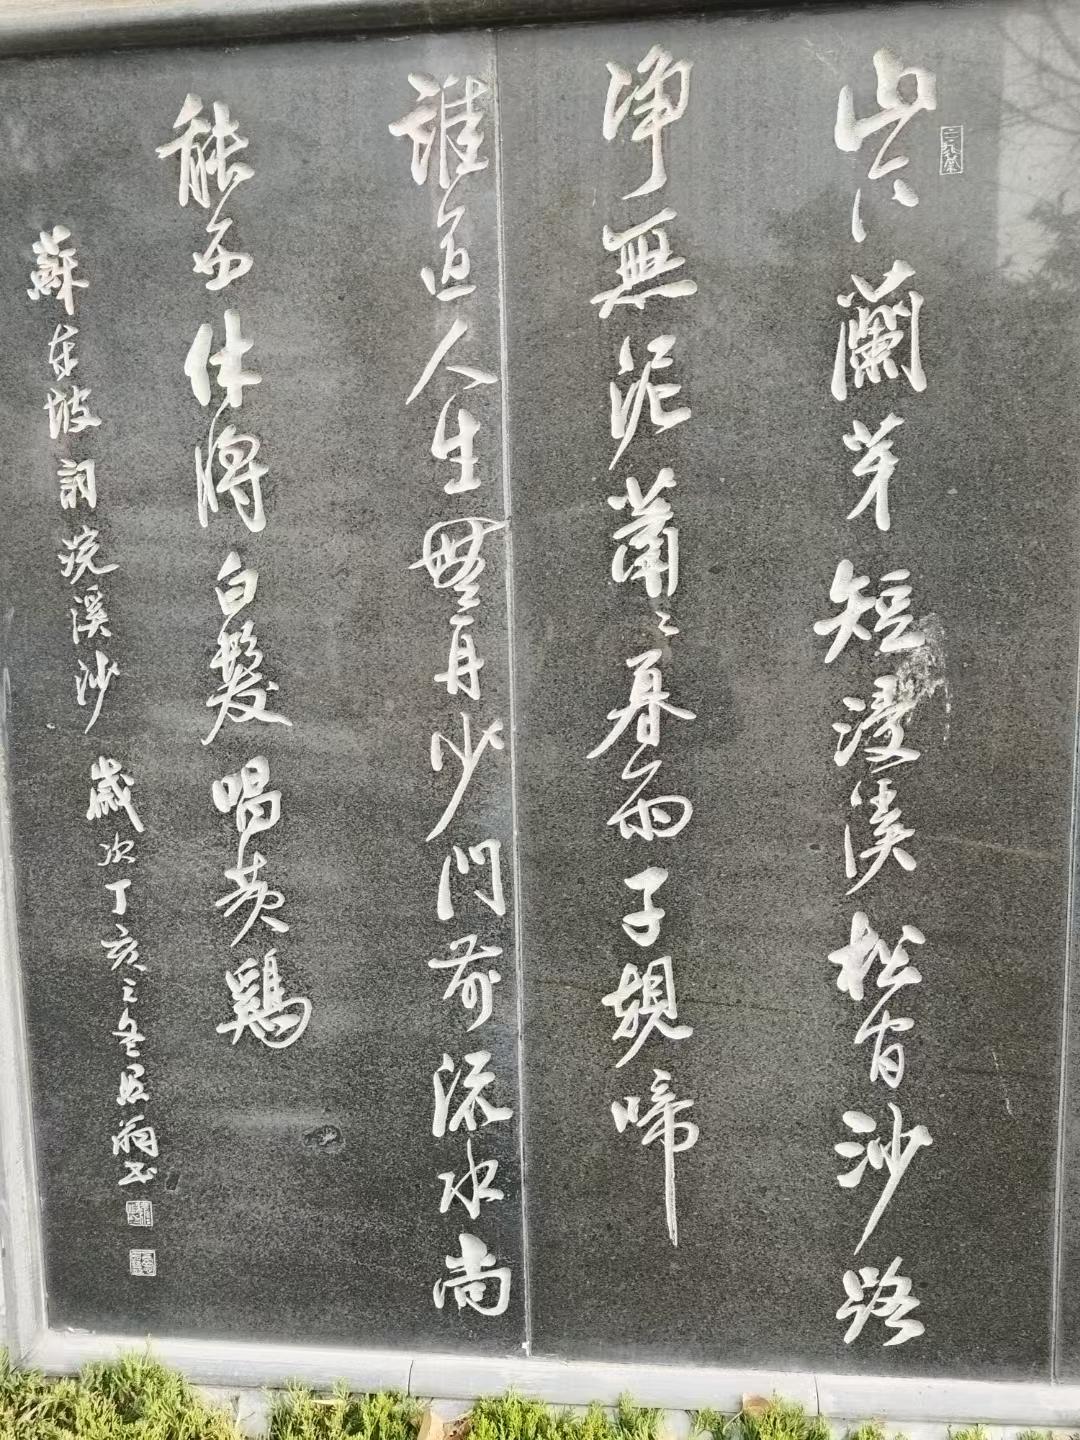 山下蘭芽短浸溪松間沙路
净無泥蕭〻暮雨子規啼
誰道人生無再少門前流水尚
能西休將白髮唱黄鷄
蘇東坡詞浣溪沙 歲次丁亥之冬翁书